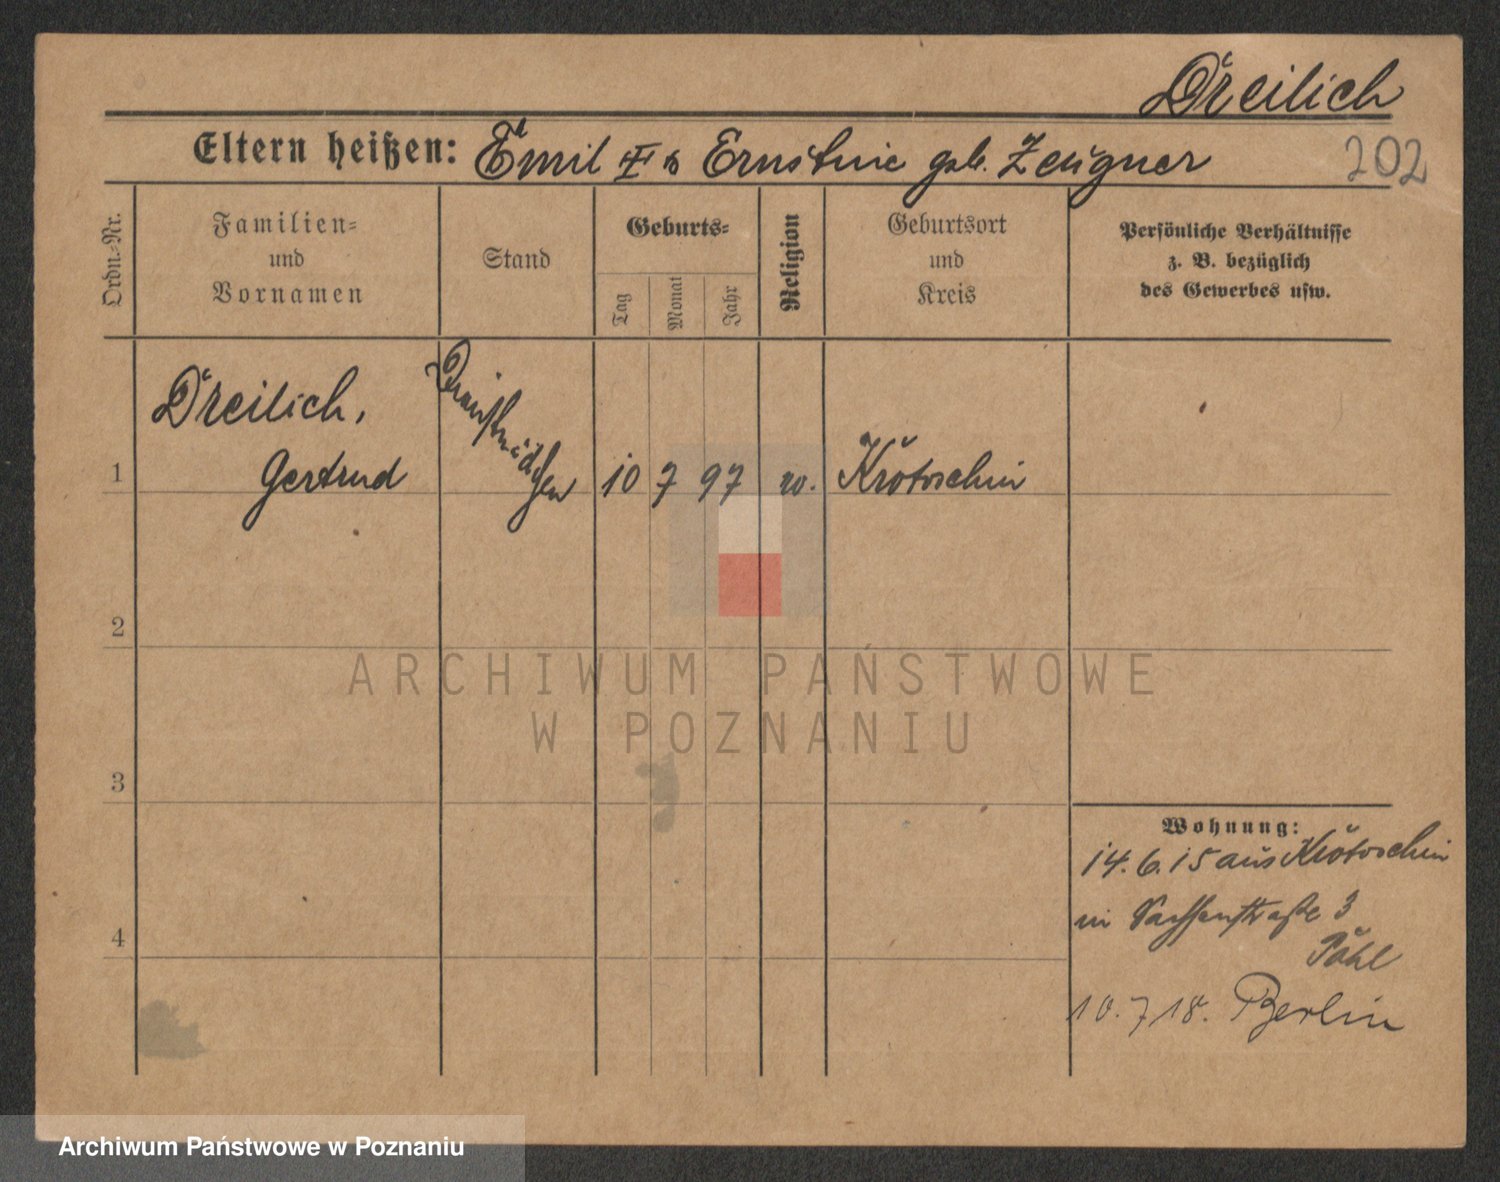 Dreilich
Eltern heißen: Emil u. Ernstine geb. Zeugner
202
Ordn.-Nr.
Familien-
und
Vornamen
Stand
Geburts-
Tag
Monat
Jahr
Religion
Geburtsort
und
Kreis
Persönliche Verhältnisse
z. B. bezüglich
des Gewerbes usw.
1
Dreilich,
Gertrud
Dienstmädchen
10 7 97
Krotoschin
2
3
4
Wohnung:
14.6.15 aus Krotoschin
in Sachsenstraße 3
Pohl
10.7.18. Berlin
ARCHIWUM PAŃSTWOWE
W POZNANIU
Archiwum Państwowe w Poznaniu